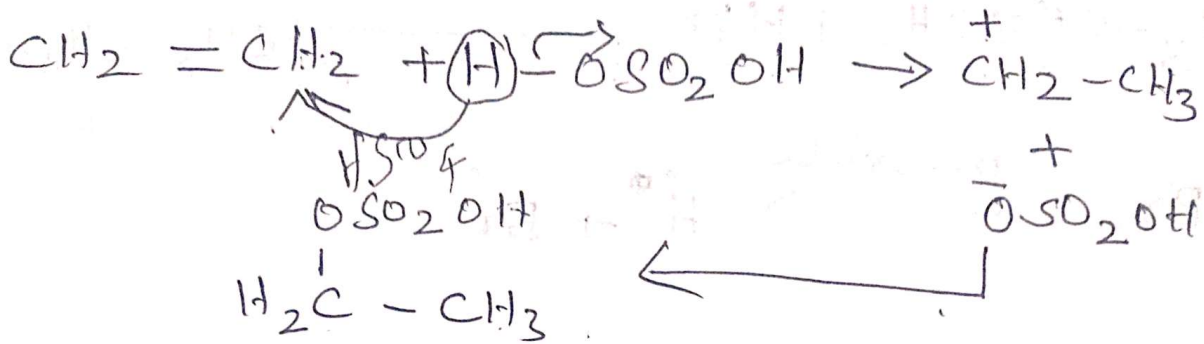 CH2 = CH2 + H - OSO2OH → +CH2 - CH3
+
HSO4
OSO2OH
-OSO2OH
H2C - CH3